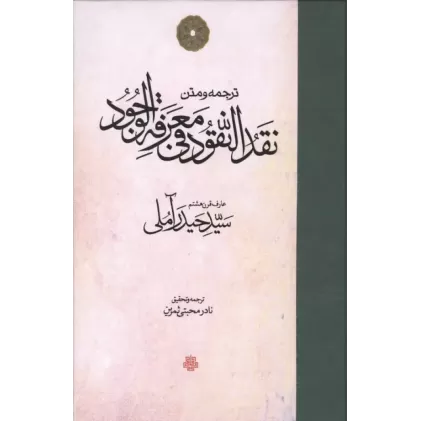 ترجمه و متن
نقد النقود فی معرفة الوجود
عارف قرن هشتم
سیّد حیدر آملی
ترجمه و تحقیق
نادر محبتی ثمرین